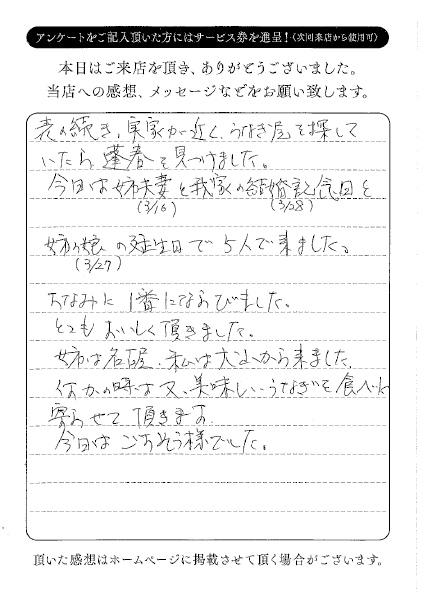 アンケートをご記入頂いた方にはサービス券を進呈!(次回来店から使用可)
本日はご来店を頂き、ありがとうございました。
当店への感想、メッセージなどをお願い致します。
続き、実家が近く、うなぎ屋を探して
いたら、蓬春を見つけました。
今日は姉夫妻と我家の結婚記念日と
(3/16) (3/28)
姉の娘の誕生日で5人で来ました。
(3/27)
ちなみに1番にならびました。
とてもおいしく頂きました。
姉は名古屋、私は犬山から来ました。
何かの時は又、美味しいうなぎを食べに
寄らせて頂きます。
今日はごちそう様でした。
頂いた感想はホームページに掲載させて頂く場合がございます。